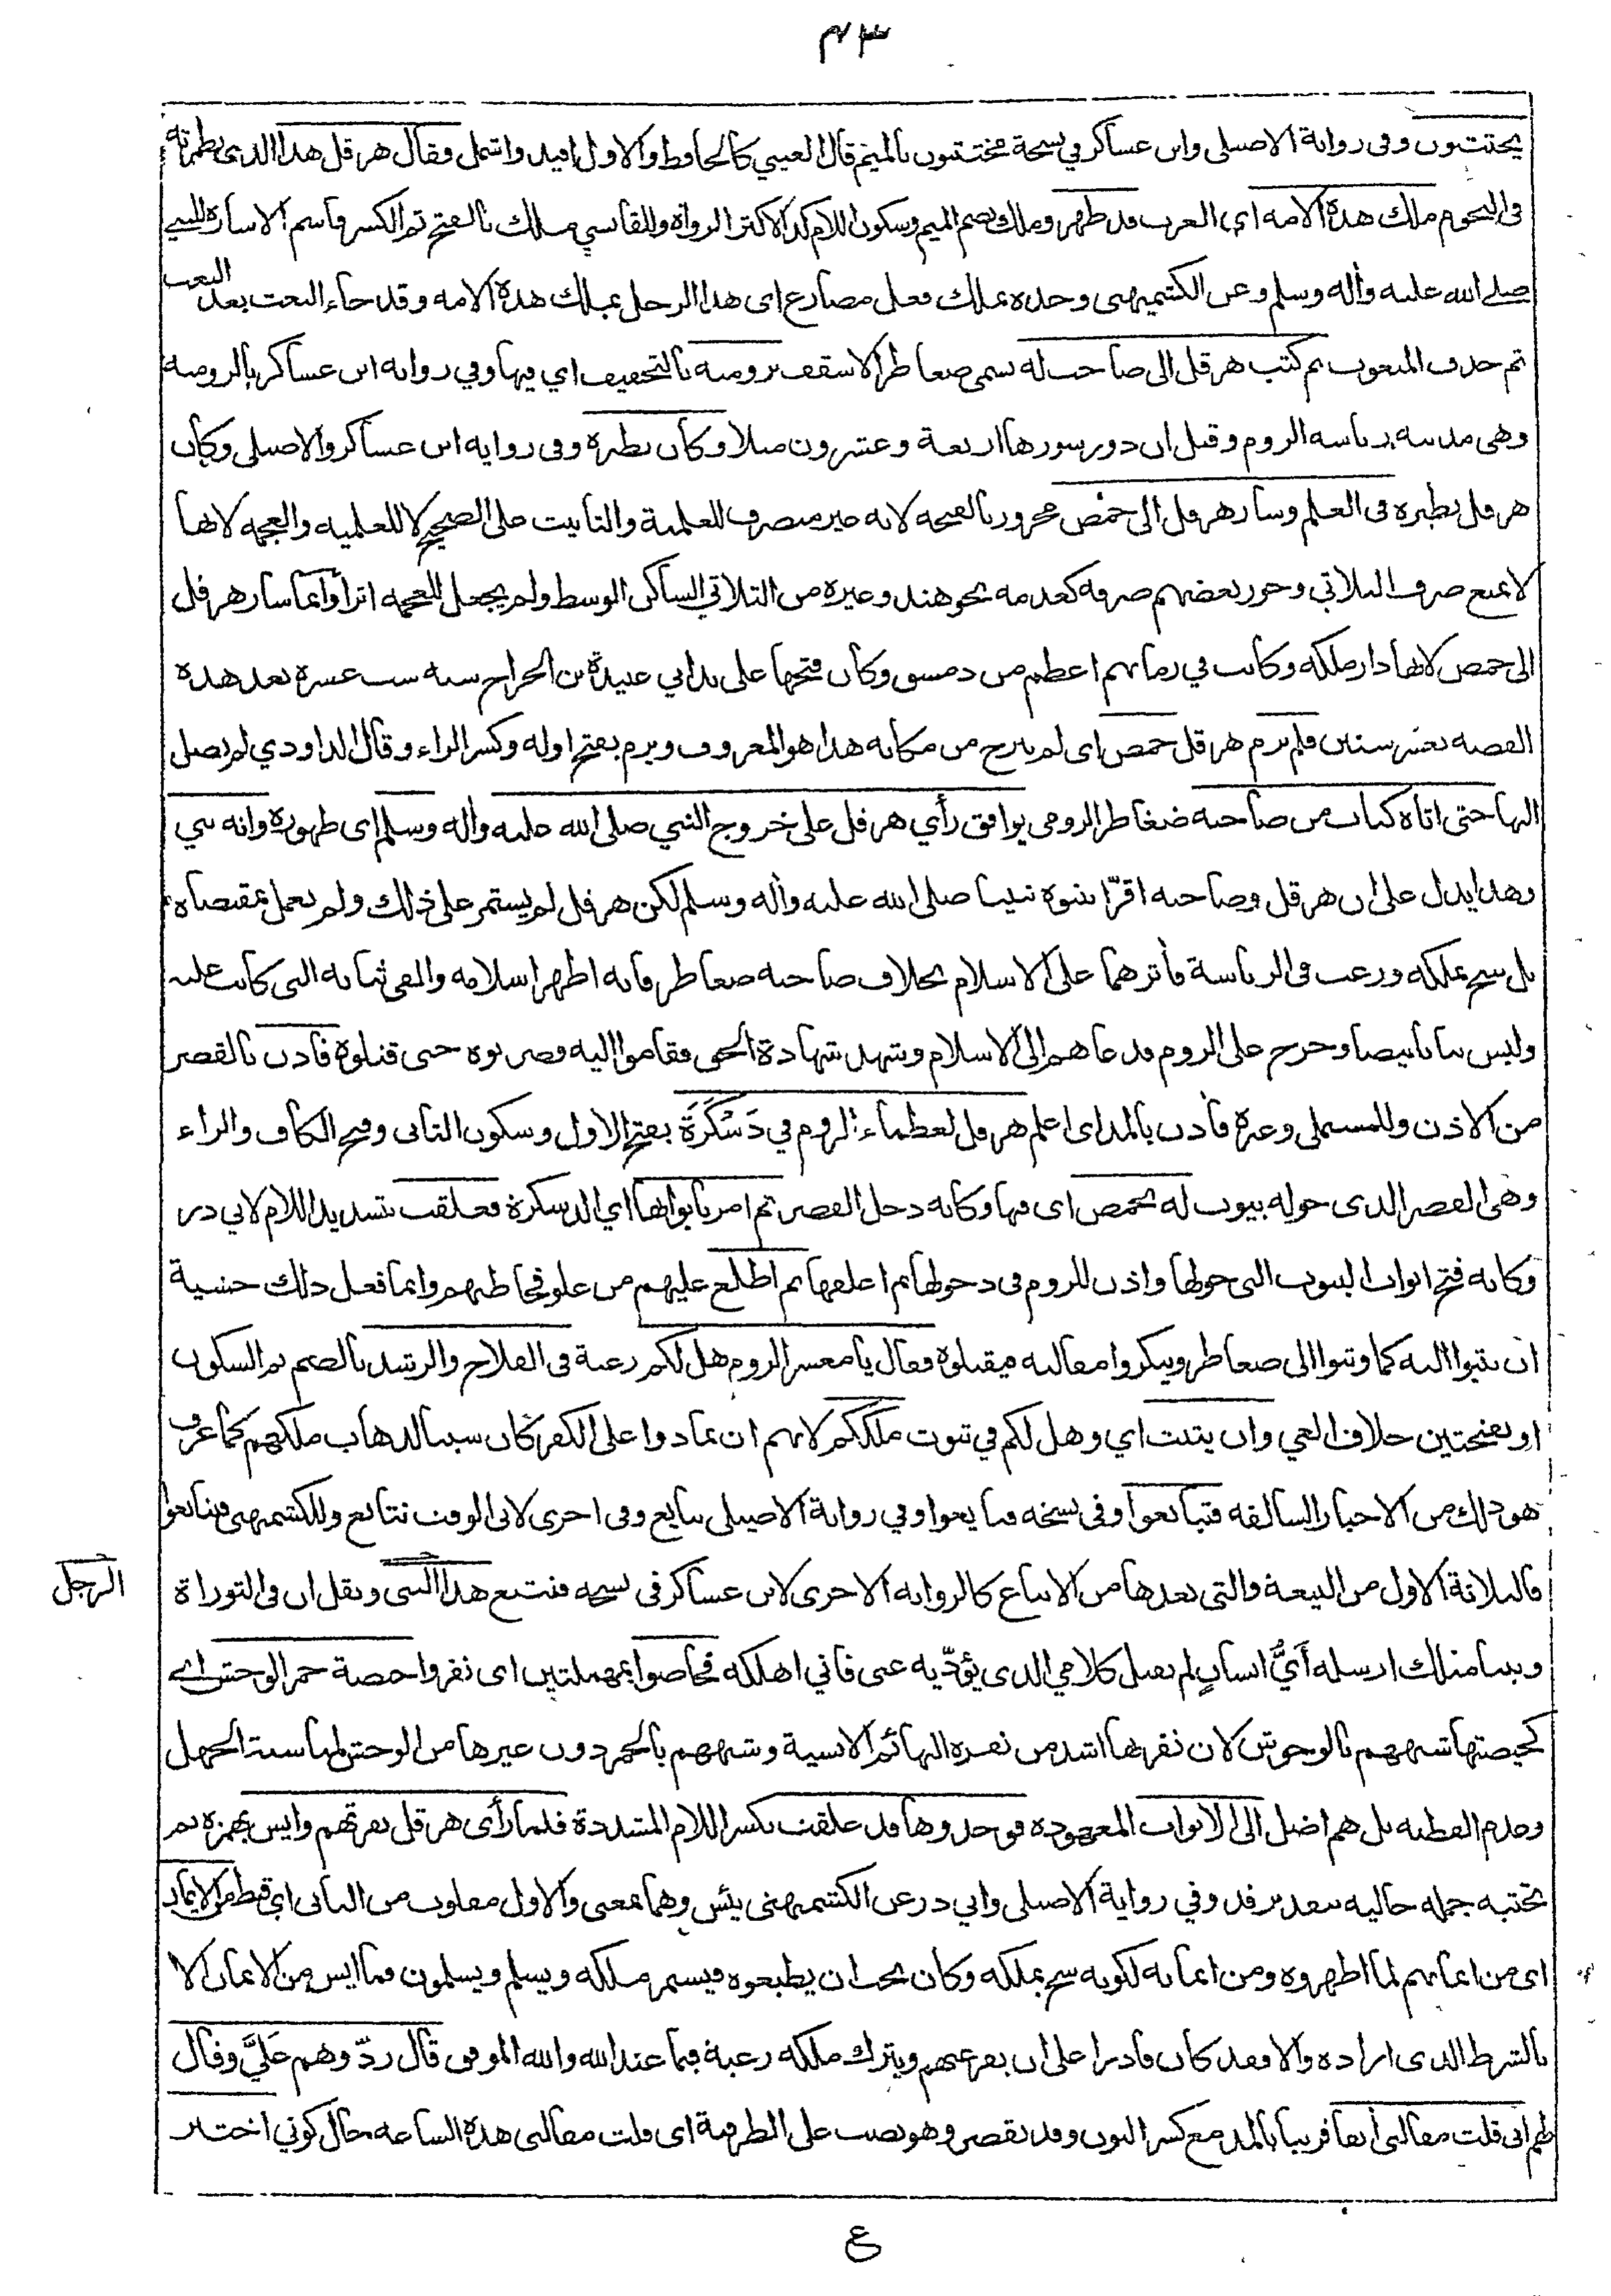 ٣٤
يختتنون وفى رواية الاصيلى وابن عساكر في نسخة مختتنون بالميم قال العيني كالحافظ والاول افيد واشمل وقال هرقل هذا الذى نظرته
فى النجوم ملك هذه الامه اى العرب قد ظهر وملك بضم الميم وسكون اللام كذا لاكثر الرواة وللقابسي مـلك بالفتح ثم الكسر فاسم الاشارة للنبي
صلى الله عليه وأله وسلم وعن الكشميهنى وحده يملك فعل مضارع اى هذا الرجل يملك هذه الامه وقد جاء النعت بعد النعت
ثم حذف المنعوت ثم كتب هرقل الى صاحب له يسمى ضغاطر الاسقف برومية بالتخفيف اي فيها وفي رواية ابن عساكر بالروميه
وهى مدينه رياسه الروم وقيل ان دور سورها اربعة وعشرون ميلا وكان نظيره وفى روايه ابن عساكر والاصيلى وكان
هرقل نظيره فى العلم وسار هرقل الى حمص مجرور بالفتحه لانه غير منصرف للعلمية والتانيث على الصحيح لا للعلميه والعجمه لانها
لا تمنع صرف الثلاثي وجوز بعضهم صرفه كعدمه نحو هند وغيره من الثلاثي الساكن الوسط ولم يجعل للعجمه اثرا وانما سار هرقل
الى حمص لانها دار ملكه وكانت في زمانهم اعظم من دمشق وكان فتحها على يد ابي عبيدة بن الجراح سنه ست عشرة بعد هذه
القصه بعشر سنين فلم يرم هرقل حمص اى لم يبرح من مكانه هذا هو المعروف ويرم بفتح اوله وكسر الراء وقال الداودي لم يصل
اليها حتى اتاه كتاب من صاحبه ضغاطر الرومي يوافق رأي هرقل على خروج النبي صلى الله عليه وأله وسلم اى ظهوره وانه نبي
وهذا يدل على ان هرقل وصاحبه اقرّا بنبوة نبينا صلى الله عليه وأله وسلم لكن هرقل لم يستمر على ذلك ولم يعمل بمقتضاه
بل شح بملكه ورغب فى الرياسة فأثرهما على الاسلام بخلاف صاحبه ضغاطر فانه اظهر اسلامه والقى ثيابه التى كانت عليه
ولبس ثيابا بيضا وخرج على الروم فدعاهم الى الاسلام وشهد شهادة الحق فقاموا اليه فضربوه حتى قتلوه فأذن بالقصر
من الاذن وللمستملى وغيره فأذن بالمد اى اعلم هرقل لعظماء الروم في دَسْكَرَةَ بفتح الاول وسكون الثانى وفتح الكاف والراء
وهى القصر الذى حوله بيوت له بحمص اى فيها وكانه دخل القصر ثم امر بابوابها اي الدسكرة فغلقت بتشديد اللام لابي ذر
وكانه فتح ابواب البيوت التى حولها واذن للروم فى دخولها ثم اغلقها ثم اطلع عليهم من علو فخاطبهم وانما فعل ذلك خشية
ان يثبوا اليه كما وثبوا الى ضغاطر وينكروا مقالته فيقتلوه فقال يا معشر الروم هل لكم رغبة فى الفلاح والرشد بالضم ثم السكون
او بفتحتين خلاف الغي وان يثبت اي وهل لكم في ثبوت ملككم لانهم ان تمادوا على الكفر كان سببا لذهاب ملكهم كما عرف
هو ذلك من الاخبار السالفه فتبايعوا وفى نسخه فبايعوا وفي رواية الاصيلى نبايع وفى اخرى لابى الوقت نتابع وللكشميهنى فتتابعوا
فالثلاثة الاول من البيعة والتى بعدها من الاتباع كالرواية الاخرى لابن عساكر فى نسخه فنتبع هذا النبى ونقل ان فى التوراة
الرجل
ونبيا مثلك ارسله أيُّ انسانٍ لم يقبل كلامي الذى يؤدّيه عنى فاني اهلكه فحاصوا بمهملتين اى نفروا حيصة حمر الوحش اى
كحيصتها شبههم بالوحوش لان نفرتها اشد من نفرة البهائم الانسية وشبههم بالحمر دون غيرها من الوحش لمناسبة الجهل
وعدم الفطنه بل هم اضل الى الابواب المعهوده فوجدوها قد غلقت بكسر اللام المشددة فلما رأى هرقل نفرتهم وايس بهمزة ثم
تحتيه جمله حاليه بتقدير قد وفي رواية الاصيلى وابي ذر عن الكشميهنى يئس وهما بمعنى والاول مقلوب من الثانى اي قنط من الايمان
اى من ايمانهم لما اظهروه ومن ايمانه لكونه شح بملكه وكان يحب ان يطيعوه فيستمر ملكه ويسلم ويسلمون فما ايس من الايمان الا
بالشرط الذى اراده والا فقد كان قادرا على ان يفر عنهم ويترك ملكه رغبة فيما عند الله والله الموفق قال ردّوهم عَلَيَّ وقال
لهم انى قلت مقالتى أنفا قريبا بالمد مع كسر النون وقد تقصر وهو نصب على الظرفية اى قلت مقالتى هذه الساعه حال كوني اختبر
ع